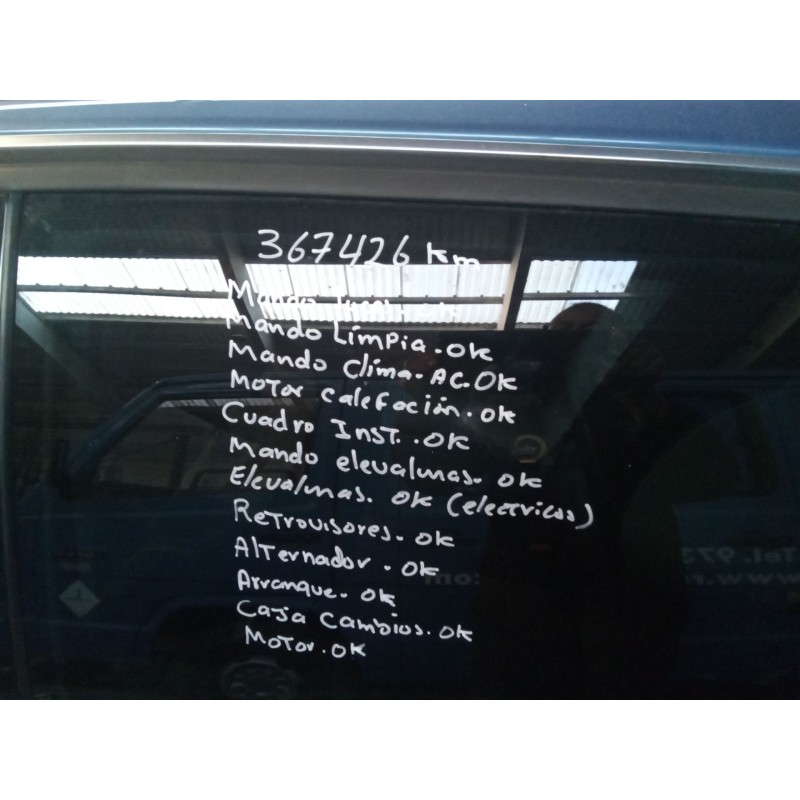 367426 km
Mando - OK
Mando Limpia - OK
Mando Clima - AC. OK
Motor Calefación. OK
Cuadro Inst. . OK
Mando elevalunas. OK
Elevalunas. OK (electricos)
Retrovisores - OK
Alternador . OK
Arranque. OK
Caja Cambios. OK
Motor. OK
Tel. 973